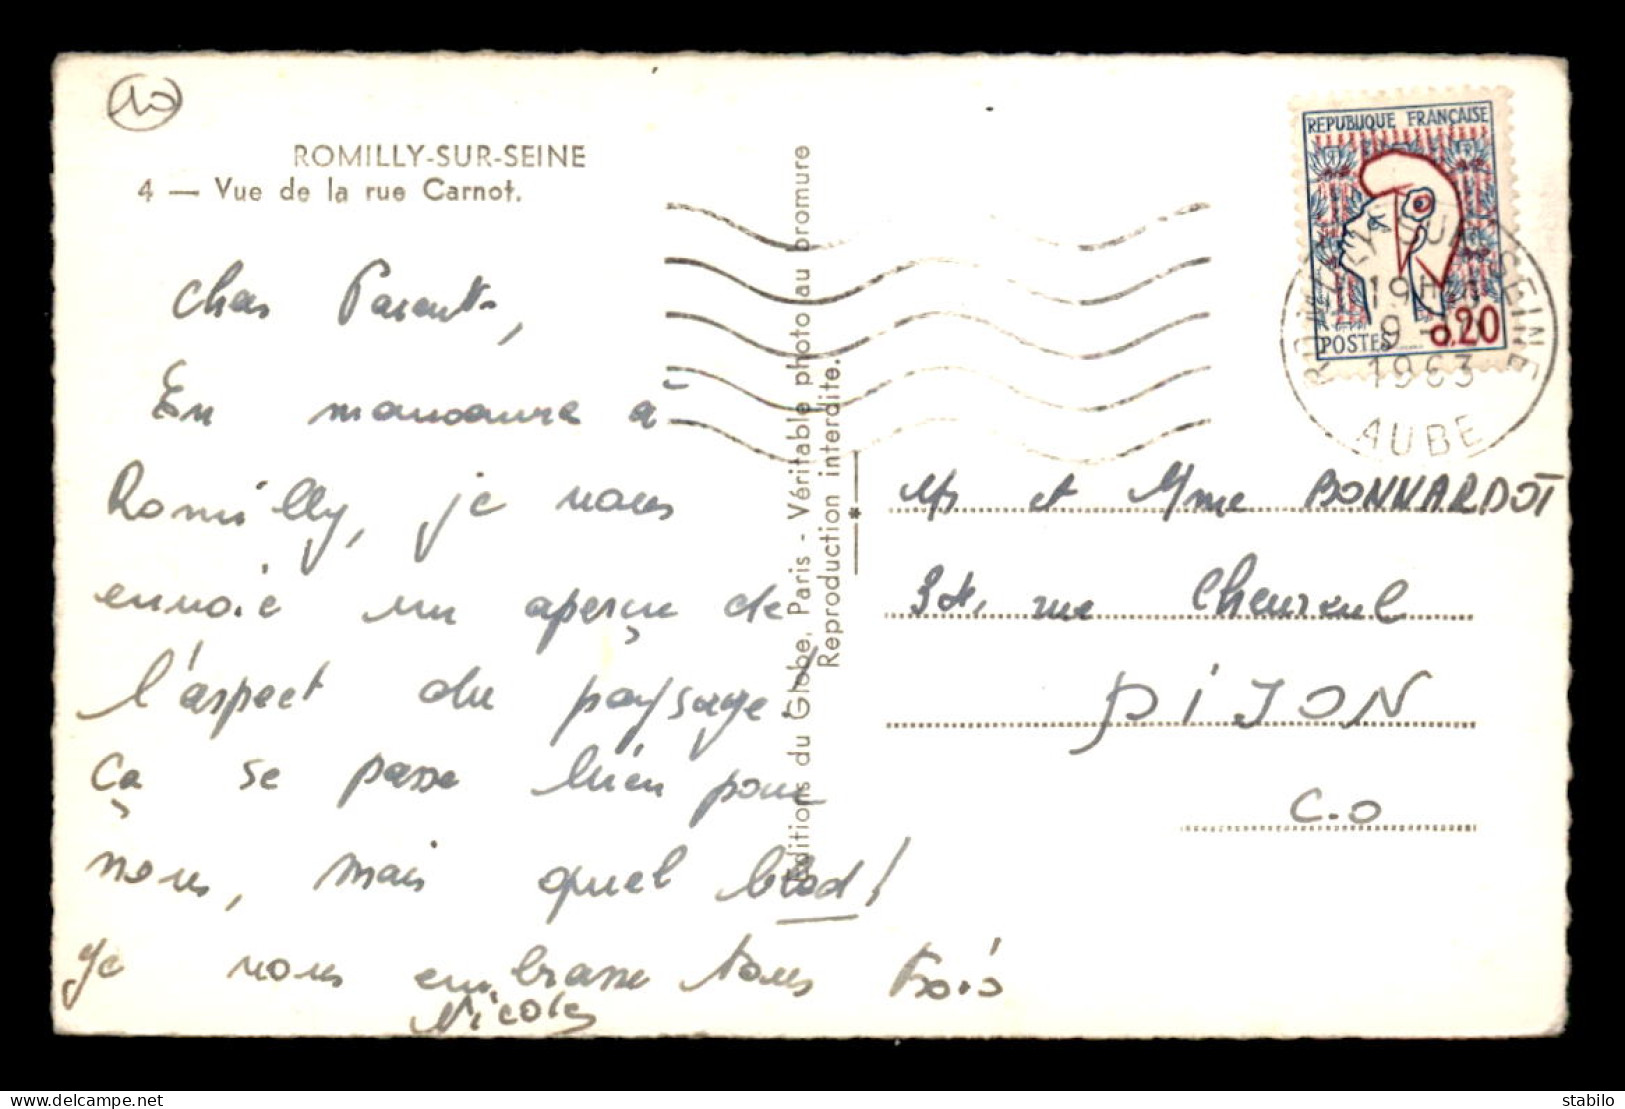 10
ROMILLY-SUR-SEINE
4 — Vue de la rue Carnot.
Chers Parents,
En manoeuvre à
Romilly, je vous
envoie un aperçu de
l'aspect du paysage!
Ça se passe bien pour
nous, mais quel
Je vous embrasse tous trois
Nicole
Editions du Globe, Paris - Véritable photo au bromure
Reproduction interdite.
REPUBLIQUE FRANÇAISE
POSTES 0.20
ROMILLY-SUR-SEINE
19H
9
1963
AUBE
Mr et Mme BONNARDOT
rue Chevreul
DIJON
C.O
delcampe.net
stabilo